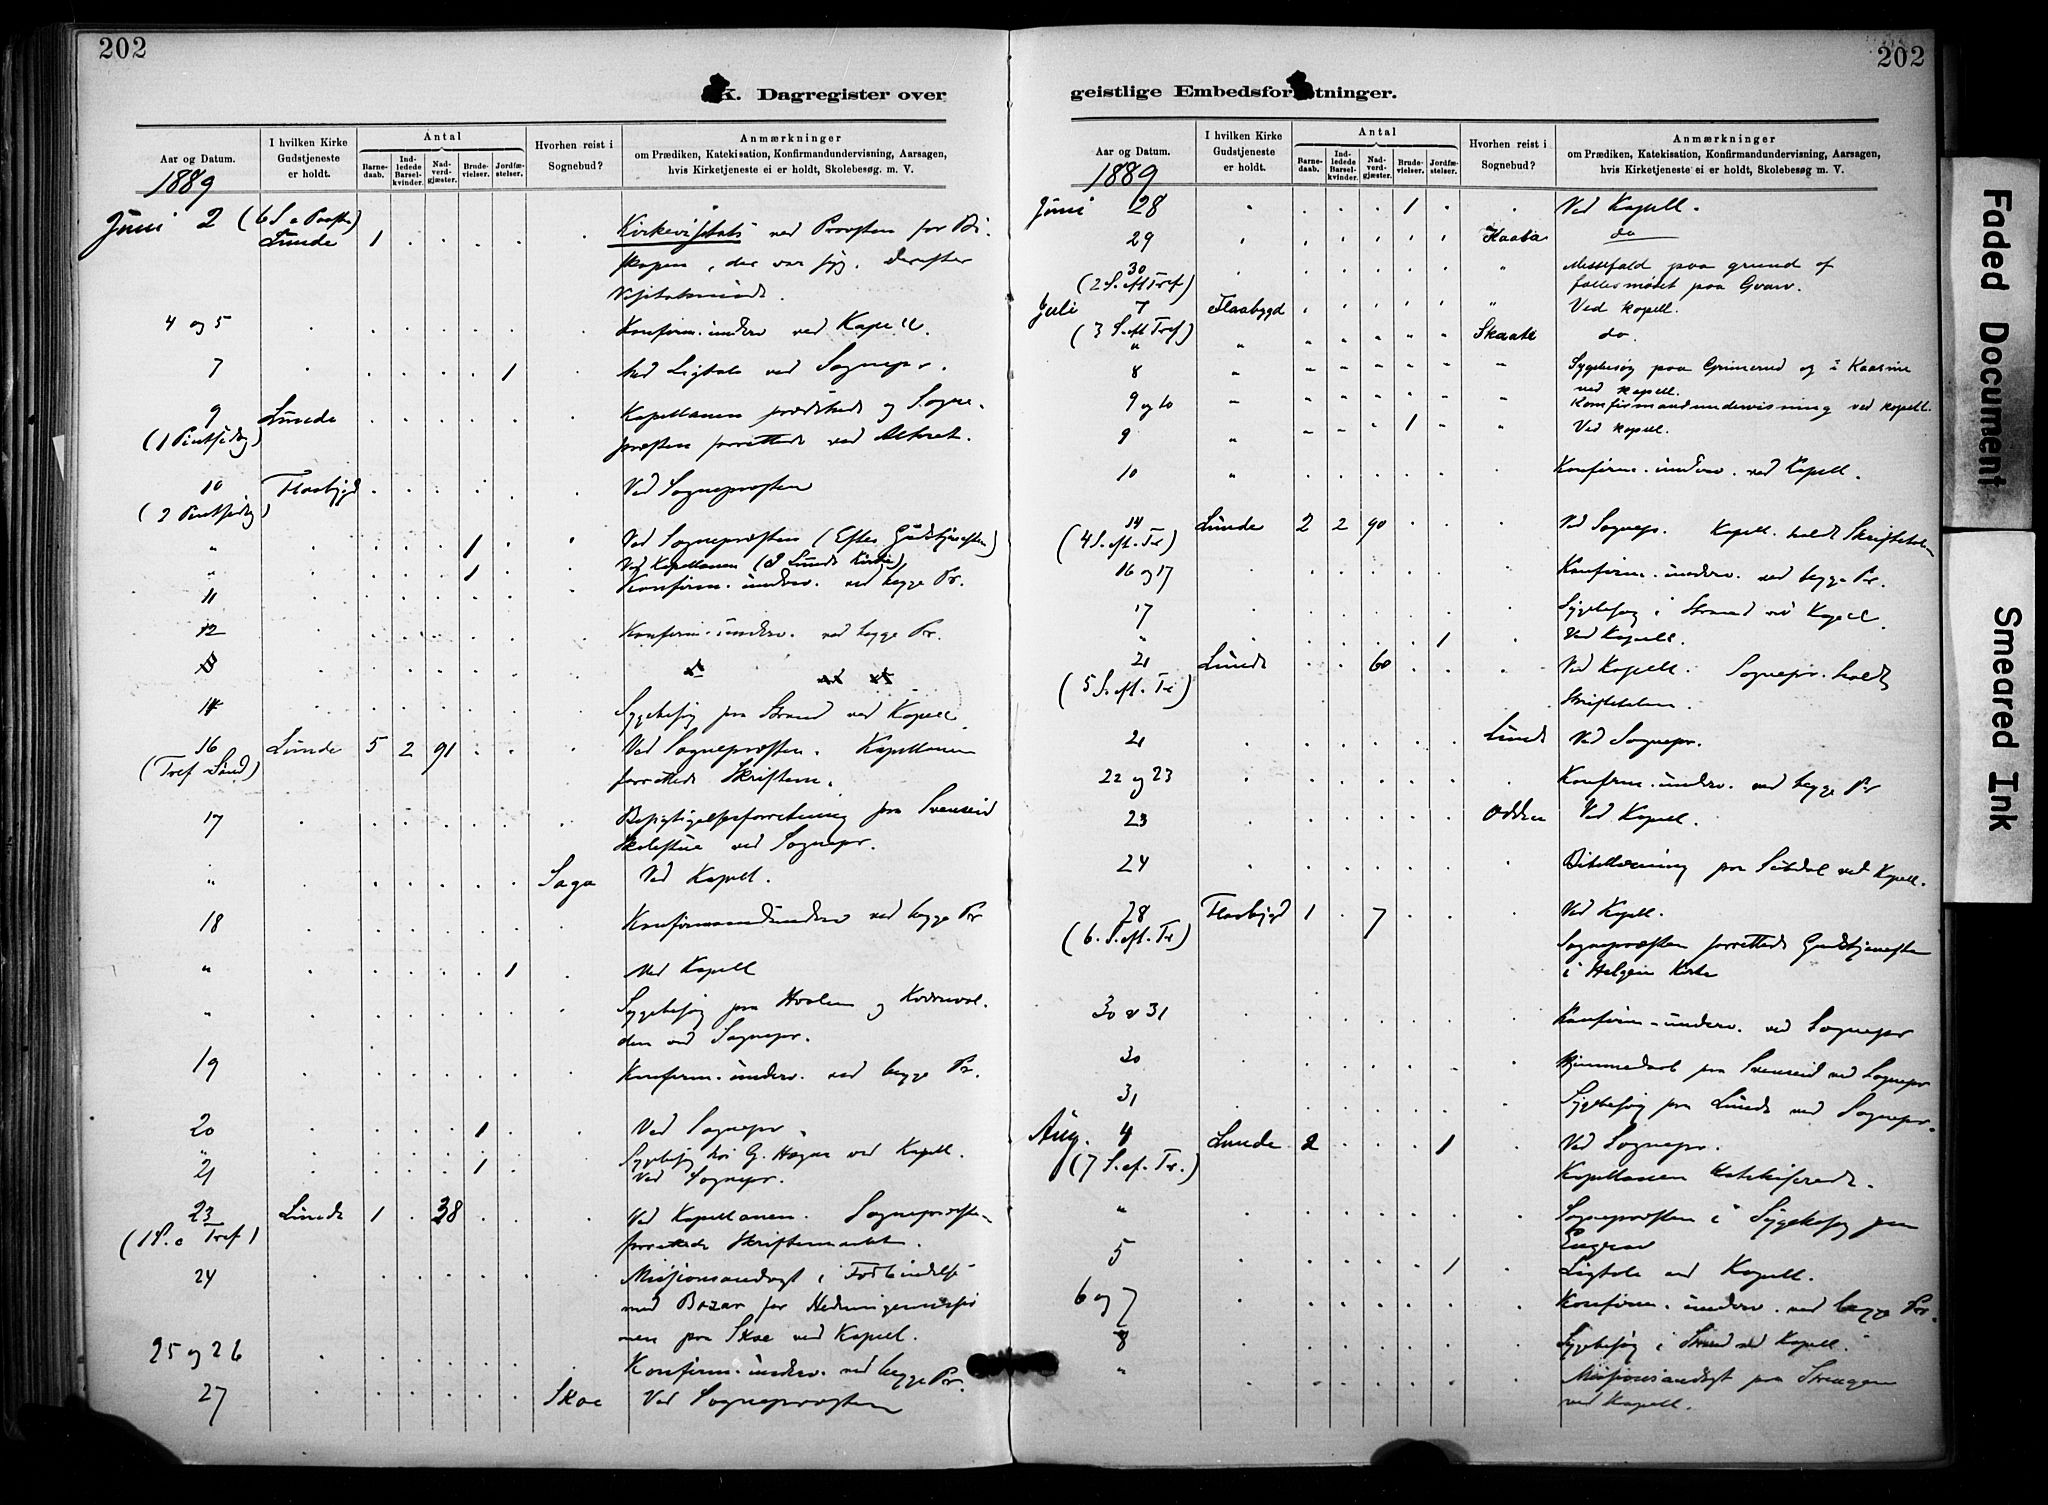 202
K. Dagregister over
Aar og Datum.
I hvilken Kirke Gudstjeneste er holdt.
Antal
Barnedaab.
Indledede Barselkvinder.
Nadverdgjæster.
Brudevielser.
Jordfæstelser.
Hvorhen reist i Sognebud?
Anmærkninger
om Prædiken, Katekisation, Konfirmandundervisning, Aarsagen,
hvis Kirketjeneste ei er holdt, Skolebesøg. m. V.
1889
Juni 2 (6 S e Paaske) Lunde 1 Kirkevisitats ved Provsten for Bi-
skopen, der var syg. Derefter
4 og 5 Konfirm. underv. ved Kapell.
7 1 Ligtale ved Sognepr.
9 (1 Pintsedag) Lunde Kapellanen prædikede og Sogne-
præsten forrettede ved Alteret.
10 (2 Pintsedag) Flaabygd Ved Sognepræsten
" 1 Ved Sognepræsten (Efter Gudstjenesten)
" 1 Ved Kapellanen (I Lunde Kirke)
11 Konfirm. underv. ved begge Pr.
12 Konfirm. underv. ved begge Pr.
14 Sygebesøg paa Strand ved Kapell.
16 (Tref Sønd) Lunde 5 2 91 Ved Sognepræsten. Kapellanen
forrettede Skriftem.
17 Besigtigelsesforretning paa Svenseid
Skolestue ved Sognepr.
" Saga Ved Kapell.
18 Konfirmandunderv ved begge Pr
" 1 Ved Kapell
" Sygebesøg paa Hvalen og
den ved Sognepr.
19 Konfirm. underv. ved begge Pr.
20 1 Ved Sognepr.
" Sygebesøg hos G. Hagen ved Kapell.
21 1 Ved Sognepr.
23 (1 S. e Tref) Lunde 1 38 Ved Kapellanen. Sognepræsten
forrettede Skriftemaalet.
24 Missionsandagt i Forbindelse
med Bazar for Hedningemissio
nen paa Skoe ved Kapell.
25 og 26 Konfirm. underv. ved begge Pr.
27 Skoe Ved Sognepræsten
202
geistlige Embedsforretninger.
Aar og Datum.
I hvilken Kirke Gudstjeneste er holdt.
Antal
Barnedaab.
Indledede Barselkvinder.
Nadverdgjæster.
Brudevielser.
Jordfæstelser.
Hvorhen reist i Sognebud?
Anmærkninger
om Prædiken, Katekisation, Konfirmandundervisning, Aarsagen,
hvis Kirketjeneste ei er holdt, Skolebesøg m. V.
1889
Juni 28 1 Ved Kapell.
29 Kaasa do
30 (2 S. eft Tref) Messefald paa grund af
fællesmødet paa Gvarv.
Juli 7 (3 S. eft Tref) Flaabygd Ved kapell.
" " Skaate do.
8 " Sygebesøg paa Grimerud og i Kaasine
ved kapell.
9 og 10 Konfirmandundervisning ved kapell.
9 " 1 Ved kapell.
10 " Konfirm. underv. ved Kapell.
14 (4 S. eft. Tr) Lunde 2 2 90 Ved Sognepr. Kapell. holdt Skriftetalen
16 og 17 Konfirm. underv. ved begge Pr.
17 Sygebesøg i Strand ved Kapell.
" 1 Ved Kapell.
21 (5 S. eft. Tr) Lunde 60 Ved Kapell. Sognepr. holdt
Skriftetalen.
21 Lunde Ved Sognepr.
22 og 23 Konfirm. underv. ved begge Pr
23 Odden Ved Kapell.
24 Bibellæsning paa Sibdal ved Kapell.
28 (6. S. eft. Tr) Flaabygd 1 7 Ved Kapell.
Sognepræsten forrettede Gudstjenesten
i Helgen Kirke
30 & 31 Konfirm. underv. ved Sognepr
30 Hjemmedaab paa Svenseid ved Sognepr
31 Sygebesøg paa Lunde ved Sognepr.
Aug. 4 (7 S. ef. Tr.) Lunde 2 1 Ved Sognepr.
Kapellanen katekiserede.
" Sognepræsten i Sygebesøg paa
5 1 Ligtale ved Kapell.
6 og 7 Konfirm. underv. ved begge Pr.
8 Sygebesøg i Strand ved Kapell.
" Missionsandagt paa Strengen
ved Kapell.
Faded Document
Smeared Ink